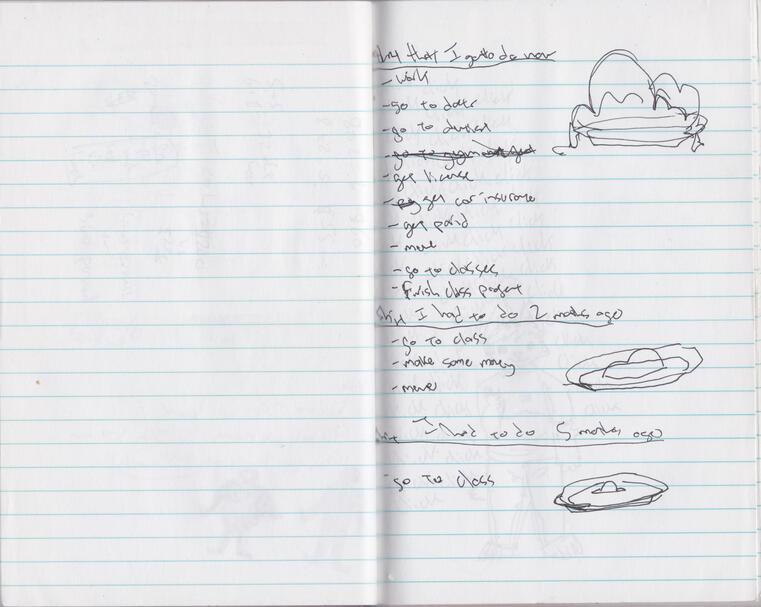 that I gotta do now
- work
- go to doctr
- go to dentist
- get license
- get car insurance
- get paid
- move
- go to classes
- finish class project
Shit I had to do 2 months ago
- go to class
- make some money
- move
I had to do 5 months ago
- go to class